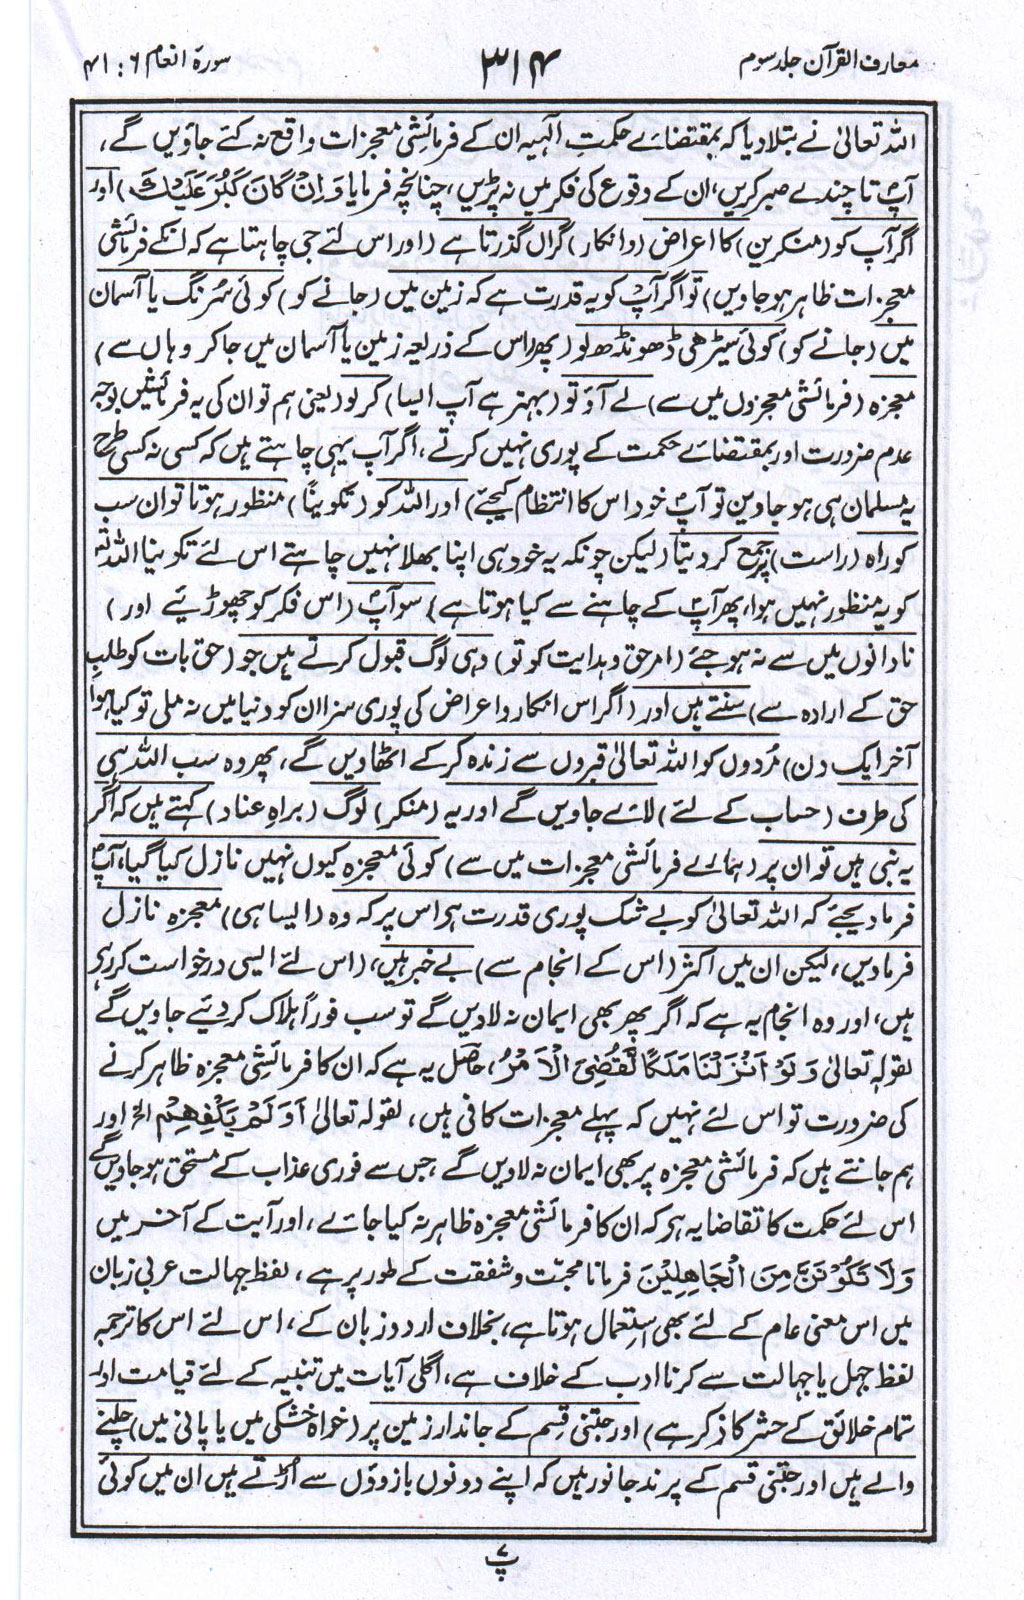 معارف القرآن جلد سوم
۳۱۴
سورۃ انعام ۶ : ۴۱
اللہ تعالیٰ نے بتلادیا کہ بمقتضائے حکمتِ الٰہیہ ان کے فرمائشی معجزات واقع نہ کئے جاویں گے،
آپؐ تا چندے صبر کریں، ان کے وقوع کی فکر میں نہ پڑیں، چنانچہ فرمایا وَاِنْ كَانَ كَبُرَ عَلَيْكَ) اور
اگر آپ کو (منکرین) کا اعراض (وانکار) گراں گذرتا ہے (اور اس لئے جی چاہتا ہے کہ انکے فرمائشی
معجزات ظاہر ہوجاویں) تو اگر آپؐ کو یہ قدرت ہے کہ زمین میں (جانے کو) کوئی سُرنگ یا آسمان
میں (جانے کو) کوئی سیڑھی ڈھونڈھ لو (پھر اس کے ذریعہ زمین یا آسمان میں جاکر وہاں سے)
معجزہ (فرمائشی معجزوں میں سے) لے آؤ تو (بہتر ہے آپ ایسا) کرلو (یعنی ہم تو ان کی یہ فرمائشیں بوجہ
عدم ضرورت اور بمقتضائے حکمت کے پوری نہیں کرتے، اگر آپ یہی چاہتے ہیں کہ کسی نہ کسی طرح
یہ مسلمان ہی ہوجاویں تو آپؐ خود اس کا انتظام کیجئے) اور اللہ کو (تکویناً) منظور ہوتا تو ان سب
کو راہ (راست) پر جمع کر دیتا (لیکن چونکہ یہ خود ہی اپنا بھلا نہیں چاہتے اس لئے تکوینا اللہ تعالیٰ
کو یہ منظور نہیں ہوا، پھر آپؐ کے چاہنے سے کیا ہوتا ہے) سو آپؐ (اس فکر کو چھوڑئیے اور)
نادانوں میں سے نہ ہوجئے (امر حق و ہدایت کو تو) وہی لوگ قبول کرتے ہیں جو (حق بات کو طلبِ
حق کے ارادہ سے) سنتے ہیں اور (اگر اس انکار و اعراض کی پوری سزا ان کو دنیا میں نہ ملی تو کیا ہوا
آخر ایک دن) مُردوں کو اللہ تعالیٰ قبروں سے زندہ کرکے اٹھاویں گے، پھر وہ سب اللہ ہی
کی طرف (حساب کے لئے) لائے جاویں گے اور یہ (منکر) لوگ (براہِ عناد) کہتے ہیں کہ اگر
یہ نبی ہیں تو ان پر (ہمارے فرمائشی معجزات میں سے) کوئی معجزہ کیوں نہیں نازل کیا گیا، آپؐ
فرما دیجئے کہ اللہ تعالیٰ کو بے شک پوری قدرت ہے اس پر کہ وہ (ایسا ہی) معجزہ نازل
فرمادیں، لیکن ان میں اکثر (اس کے انجام سے) بے خبر ہیں، (اس لئے ایسی درخواست کر رہے
ہیں، اور وہ انجام یہ ہے کہ اگر پھر بھی ایمان نہ لاویں گے تو سب فوراً ہلاک کر دئیے جاویں گے
لقولہ تعالیٰ وَلَوْ اَنْزَلْنَا مَلَكًا لَّقُضِیَ الْاَمْرُ، حاصل یہ ہے کہ ان کا فرمائشی معجزہ ظاہر کرنے
کی ضرورت تو اس لئے نہیں کہ پہلے معجزات کافی ہیں، لقولہ تعالیٰ اَوَلَمْ یَكْفِهِمْ الخ اور
ہم جانتے ہیں کہ فرمائشی معجزہ پر بھی ایمان نہ لاویں گے، جس سے فوری عذاب کے مستحق ہوجاویں گے
اس لئے حکمت کا تقاضا یہ ہے کہ ان کا فرمائشی معجزہ ظاہر نہ کیا جائے، اور آیت کے آخر میں
وَلَا تَكُوْنَنَّ مِنَ الْجَاهِلِيْنَ فرمانا محبّت و شفقت کے طور پر ہے، لفظ جہالت عربی زبان
میں اس معنی عام کے لئے بھی استعمال ہوتا ہے، بخلاف اردو زبان کے، اس لئے اس کا ترجمہ
لفظ جہل یا جہالت سے کرنا ادب کے خلاف ہے، اگلی آیات میں تنبیہ کے لئے قیامت اور
تمام خلائق کے حشر کا ذکر ہے) اور جتنی قِسم کے جاندار زمین پر (خواہ خشکی میں یا پانی میں) چلنے
والے ہیں اور جتنی قسم کے پرند جانور ہیں کہ اپنے دونوں بازوؤں سے اُڑتے ہیں ان میں کوئی
پ ۷